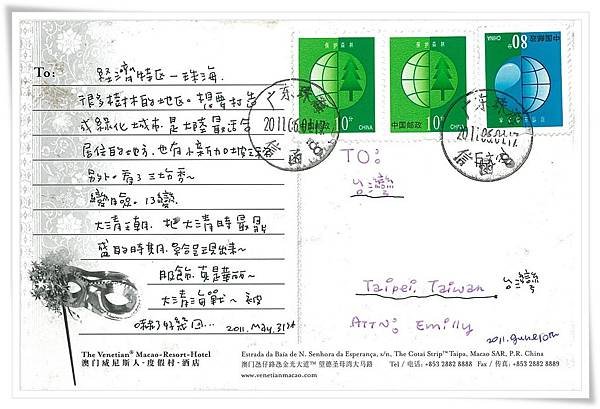 To:
經濟特区-珠海.
很多樹林的地区. 想要打造
成綠化城市. 是大陸最適合
居住的地方. 也有小新加坡之稱
變臉. 13變
大清王朝. 把大清時最鼎
盛的時期. 給呈現出來~
服飾. 真是華麗~
大清海戰~ 被
嚇了好幾回... 2011.May.31st
保护森林
10分
中国邮政
CHINA
保护森林
10分
中国邮政
CHINA
80分
中国邮政
CHINA
2011.06.01.17
2011.06.01.17
TO:
台灣
Taipei. Taiwan 台灣
ATTN: Emilly
2011.June10th
The Venetian® Macao-Resort-Hotel
澳门威尼斯人-度假村-酒店
Estrada da Baía de N. Senhora da Esperança, s/n, The Cotai Strip™ Taipa, Macao SAR, P.R. China
澳门氹仔路氹金光大道™ 望德圣母湾大马路 Tel / 电话: +853 2882 8888 Fax / 传真: +853 2882 8889
www.venetianmacao.com